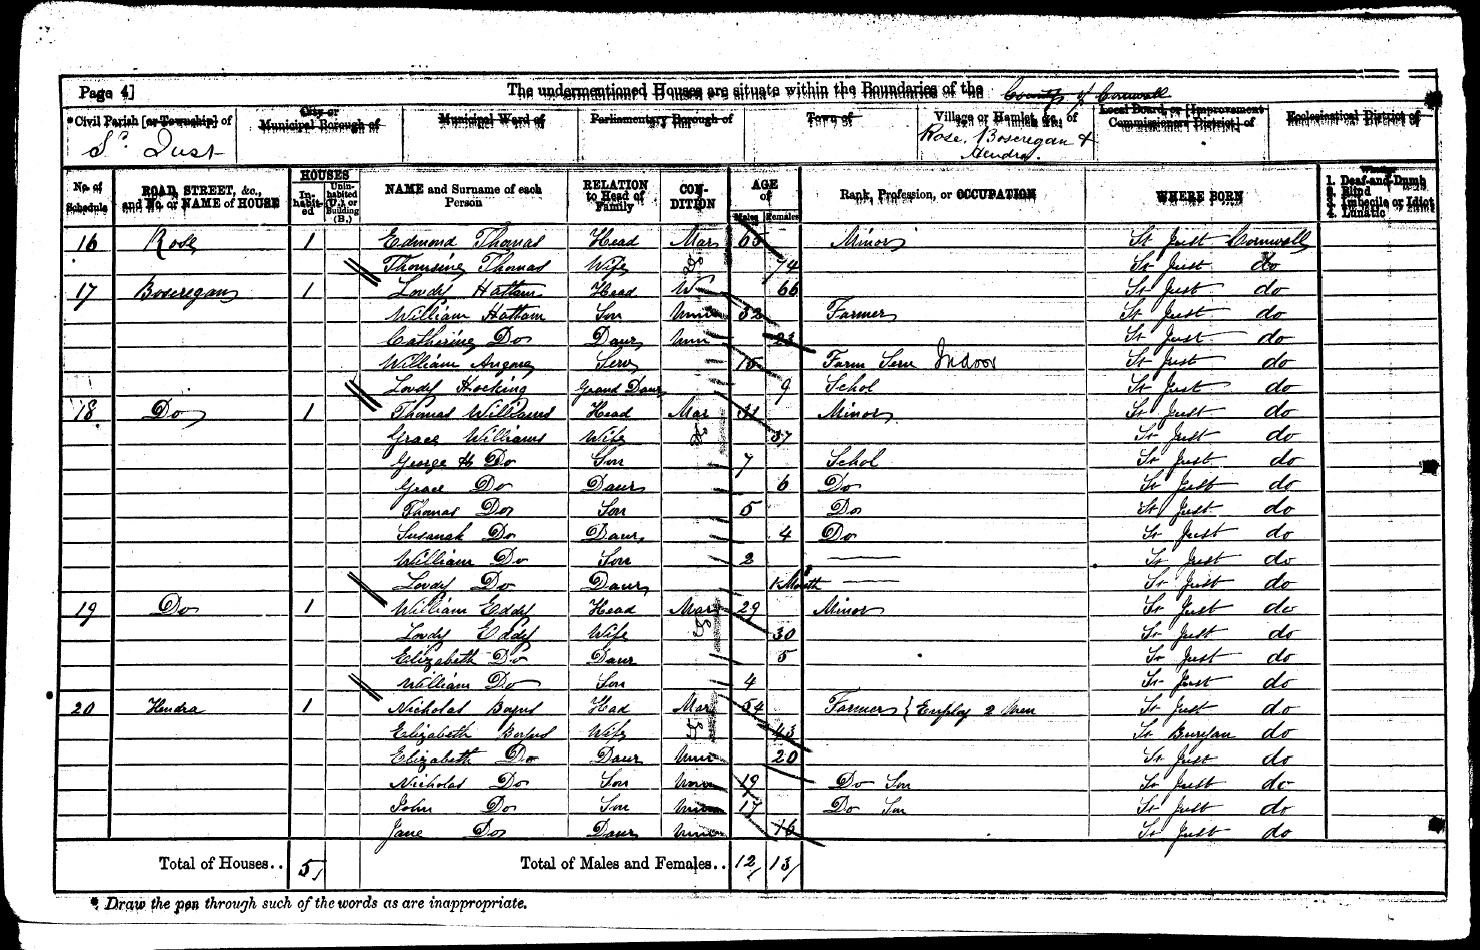 Page 4] The undermentioned Houses are situate within the Boundaries of the County of Cornwall
*Civil Parish [or Township] of City or Municipal Borough of Municipal Ward of Parliamentary Borough of Town of Village or Hamlet, &c., of Local Board, or [Improvement Commissioners District] of Ecclesiastical District of
St. Just Rose, Boseregan & Hendra.
No. of Schedule ROAD, STREET, &c., and No. or NAME of HOUSE HOUSES In-habit-ed Unin-habited (U.) or Building (B.) NAME and Surname of each Person RELATION to Head of Family CON-DITION AGE of Males Females Rank, Profession, or OCCUPATION WHERE BORN Whether 1. Deaf-and-Dumb 2. Blind 3. Imbecile or Idiot 4. Lunatic
16 Rose 1 Edmond Thomas Head Mar 65 Minor St Just Cornwall
Thomsine Thomas Wife 74 St Just do
17 Boseregan 1 Lovdy Hattam Head W 66 St Just do
William Hattam Son Unm 32 Farmer St Just do
Catherine Do Daur Unm 23 St Just do
William Serv 15 Farm Serv Indoor St Just do
Lovdy Hocking Grand Daur 9 Schol St Just do
18 Do 1 Thomas Williams Head Mar Minor St Just do
Grace Williams Wife 37 St Just do
George H Do Son 7 Schol St Just do
Grace Do Daur 6 Do St Just do
Thomas Do Son 5 Do St Just do
Susanah Do Daur 4 Do St Just do
William Do Son 2 St Just do
Lovdy Do Daur 1 Month St Just do
19 Do 1 William Eddy Head Mar 29 Minor St Just do
Lovdy Eddy Wife 30 St Just do
Elizabeth Do Daur 5 St Just do
William Do Son 4 St Just do
20 Hendra 1 Nicholas Head Mar 54 Farmer { Employ 2 Men St Just do
Elizabeth Wife 43 St Buryan do
Elizabeth Do Daur Unm 20 St Just do
Nicholas Do Son Unm 19 Do Son St Just do
John Do Son Unm 17 Do Son St Just do
Jane Do Daur Unm 16 St Just do
Total of Houses.. 5 Total of Males and Females.. 12 13
* Draw the pen through such of the words as are inappropriate.